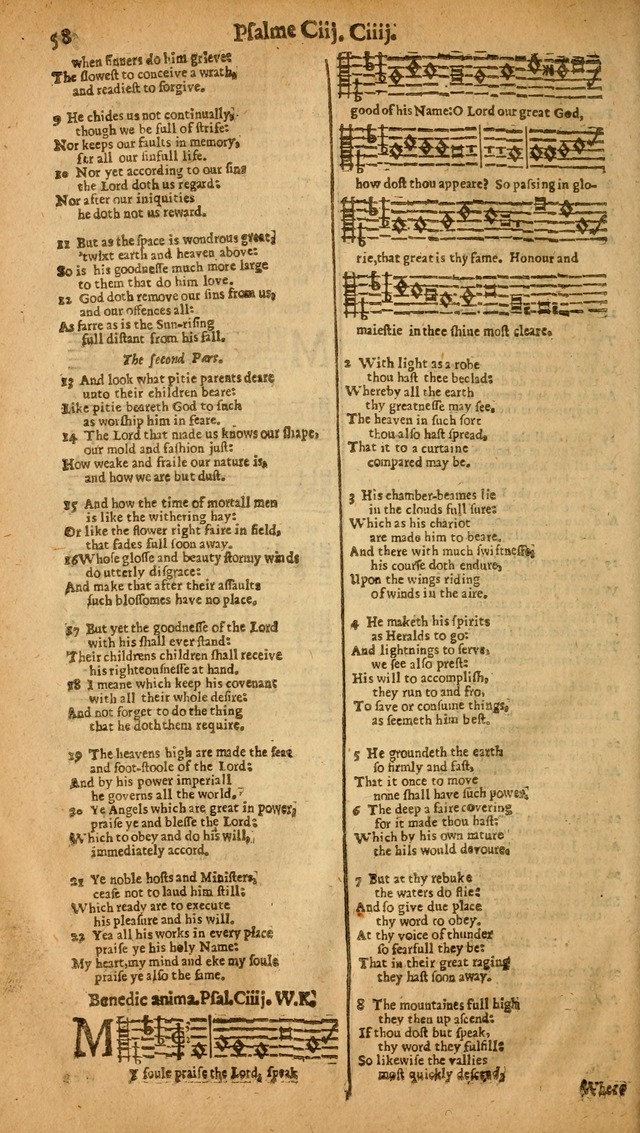 58
Psalme Ciij. Ciiij.
when sinners do him grieve:
The slowest to conceive a wrath,
and readiest to forgive.
9 He chides us not continually,
though we be full of strife:
Nor keeps our faults in memory,
for all our sinfull life.
10 Nor yet according to our sins
the Lord doth us regard:
Nor after our iniquities
he doth not us reward.
11 But as the space is wondrous great,
'twixt earth and heaven above:
So is his goodnesse much more large
to them that do him love.
12 God doth remove our sins from us,
and our offences all:
As farre as is the Sun-rising
full distant from his fall.
The second Part.
13 And look what pitie parents deare
unto their children beare:
Like pitie beareth God to such
as worship him in feare.
14 The Lord that made us knows our shape,
our mold and fashion just:
How weak and fraile our nature is,
and how we are but dust.
15 And how the time of mortall men
is like the withering hay:
Or like the flower right faire in field,
that fades full soon away.
16 Whose glosse and beauty stormy winds
do utterly disgrace:
And make that after their assaults
such blossomes have no place.
17 But yet the goodnesse of the Lord
with his shall ever stand:
Their childrens children shall receive
his righteousnesse at hand.
18 I meane which keep his covenant
with all their whole desire:
And not forget to do the thing
that he doth them require.
19 The heavens high are made the seat
and foot-stoole of the Lord:
And by his power imperiall
he governs all the world.
20 Ye Angels which are great in power,
praise ye and blesse the Lord:
Which to obey and do his will,
immediately accord.
21 Ye noble hosts and Ministers,
cease not to laud him still:
Which ready are to execute
his pleasure and his will.
22 Yea all his works in every place
praise ye his holy Name:
My heart, my mind and eke my soule
praise ye also the same.
Benedic anima. Psal. Ciiij. W. K.
MY soule praise the Lord, speak
good of his Name: O Lord our great God,
how dost thou appeare? So passing in glo-
rie, that great is thy fame. Honour and
maiestie in thee shine most cleare.
2 With light as a robe
thou hast thee beclad:
Whereby all the earth
thy greatnesse may see.
The heaven in such sort
thou also hast spread,
That it to a curtaine
compared may be.
3 His chamber-beames lie
in the clouds full sure:
Which as his chariot
are made him to beare.
And there with much swiftnesse
his course doth endure,
Upon the wings riding
of winds in the aire.
4 He maketh his spirits
as Heralds to go:
And lightnings to serve,
we see also prest:
His will to accomplish,
they run to and fro,
To save or consume things,
as seemeth him best.
5 He groundeth the earth
so firmly and fast,
That it once to move
none shall have such power.
6 The deep a faire covering
for it made thou hast:
Which by his own nature
the hils would devoure.
7 But at thy rebuke
the waters do flie:
And so give due place
thy word to obey.
At thy voice of thunder
so fearfull they be:
That in their great raging
they hast soon away.
8 The mountaines full high
they then up ascend:
If thou dost but speak,
thy word they fulfill:
So likewise the vallies
most quickly descend,
Where